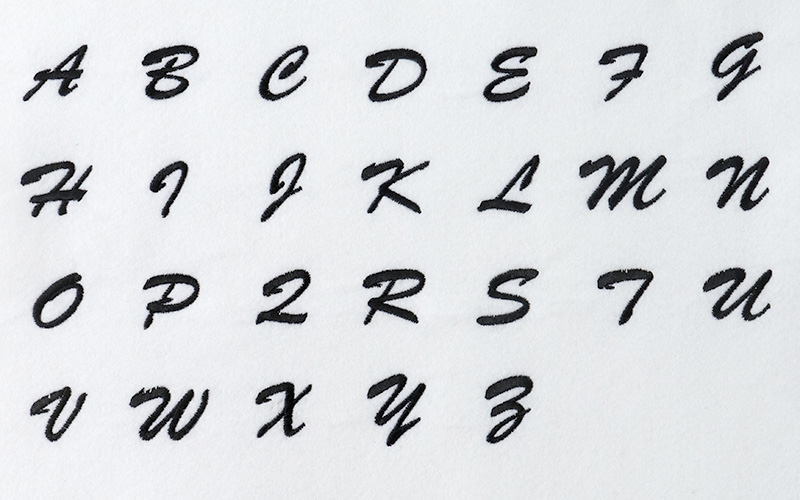 A B C D E F G
H I J K L M N
O P Q R S T U
V W X Y Z